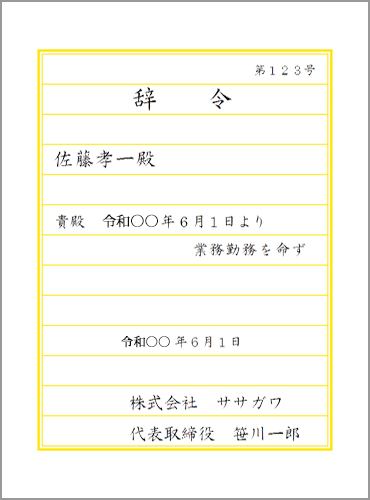 第１２３号
辞　令
佐藤孝一殿
貴殿　令和〇〇年６月１日より
業務勤務を命ず
令和〇〇年６月１日
株式会社　ササガワ
代表取締役　笹川一郎